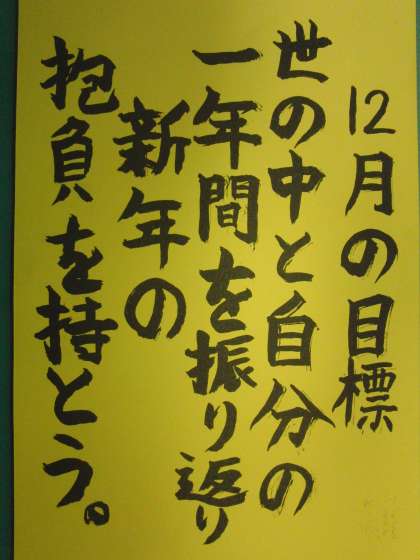 12月の目標
世の中と自分の
一年間を振り返り
新年の
抱負を持とう。